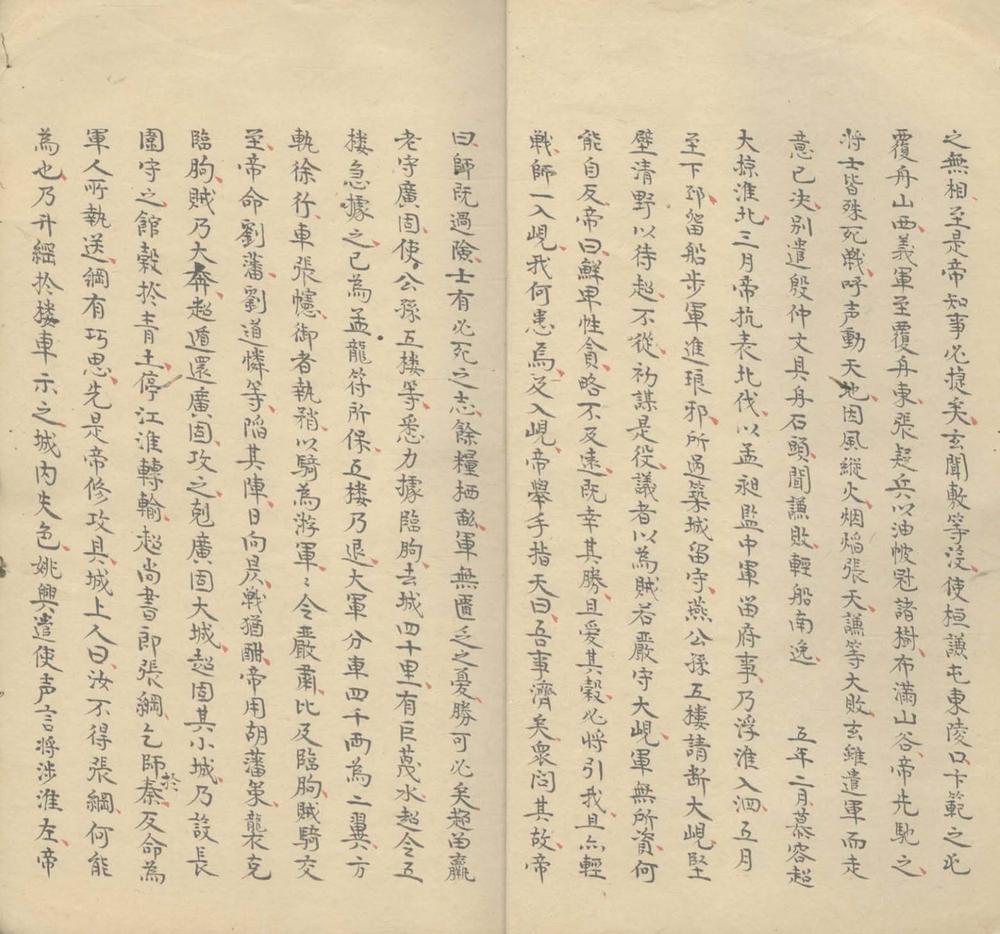 之無相至是帝知事必捷矣玄聞敷等沒使桓謙屯東陵口卞範之屯
覆舟山西義軍至覆舟東張疑兵以油帔冠諸樹布滿山谷帝先馳之
將士皆殊死戰呼声動天地因風縱火烟焰張天謙等大敗玄雖遣軍而走
意已决別遣殷仲文具舟石頭聞謙敗輕船南逸　五年二月慕容超
大掠淮北三月帝抗表北伐以孟昶監中軍畱府事乃浮淮入泗五月
至下邳留船步軍進琅邪所過築城畱守燕公孫五樓請断大峴堅
壁清野以待超不從初謀是役議者以為賊若嚴守大峴軍無所資何
能自反帝曰鮮卑性貪略不及遠既幸其勝且愛其穀必將引我且亦輕
戰師一入峴我何患焉及入峴帝舉手指天曰吾事濟矣衆问其故帝
曰師既過險士有必死之志餘糧栖畝軍無匱乏之憂勝可必矣超畱羸
老守廣固使公孫五樓等悉力據臨朐去城四十里有巨蔑水超令五
樓急據之已為孟龍符所保五樓乃退大軍分車四千兩為二翼方
軌徐行車張幰御者執矟以騎為游軍〻令嚴肅比及臨朐賊騎交
至帝命劉藩劉道憐等陷其陣日向昃戰猶酣帝用胡藩策襲克
臨朐賊乃大奔超遁還廣固攻之剋廣固大城超固其小城乃設長
圍守之館穀於青土停江淮轉輸超尚書郎張綱乞師於秦反命為
軍人所執送綱有巧思先是帝修攻具城上人曰汝不得張綱何能
為也乃升綱於樓車示之城內失色姚興遣使声言將涉淮左帝